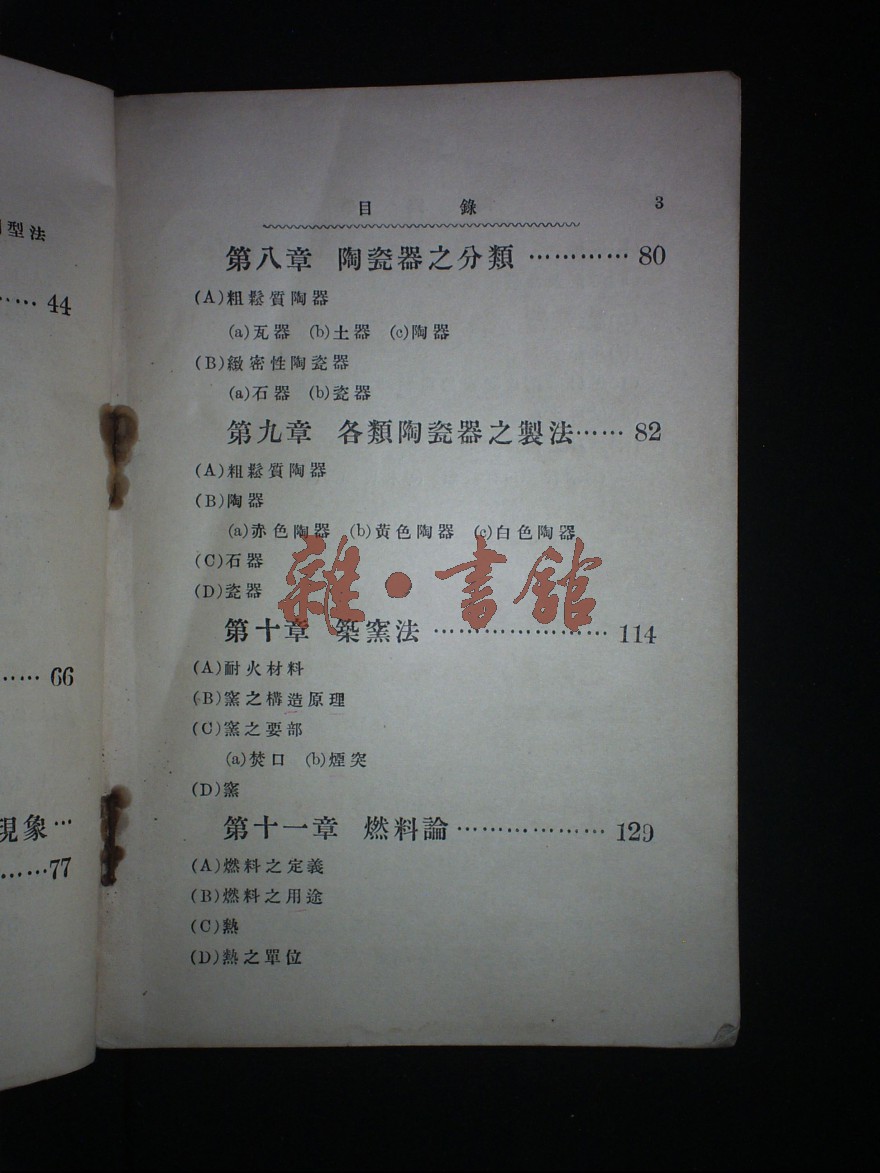 型法
44
66
現象…
……77
目錄 3
第八章 陶瓷器之分類 ………… 80
(A)粗鬆質陶器
(a)瓦器 (b)土器 (c)陶器
(B)緻密性陶瓷器
(a)石器 (b)瓷器
第九章 各類陶瓷器之製法…… 82
(A)粗鬆質陶器
(B)陶器
(a)赤色陶器 (b)黄色陶器 (c)白色陶器
(C)石器
(D)瓷器
雜·書館
第十章 築窯法 ………………… 114
(A)耐火材料
(B)窯之構造原理
(C)窯之要部
(a)焚口 (b)煙突
(D)窯
第十一章 燃料論 ……………… 129
(A)燃料之定義
(B)燃料之用途
(C)熱
(D)熱之單位